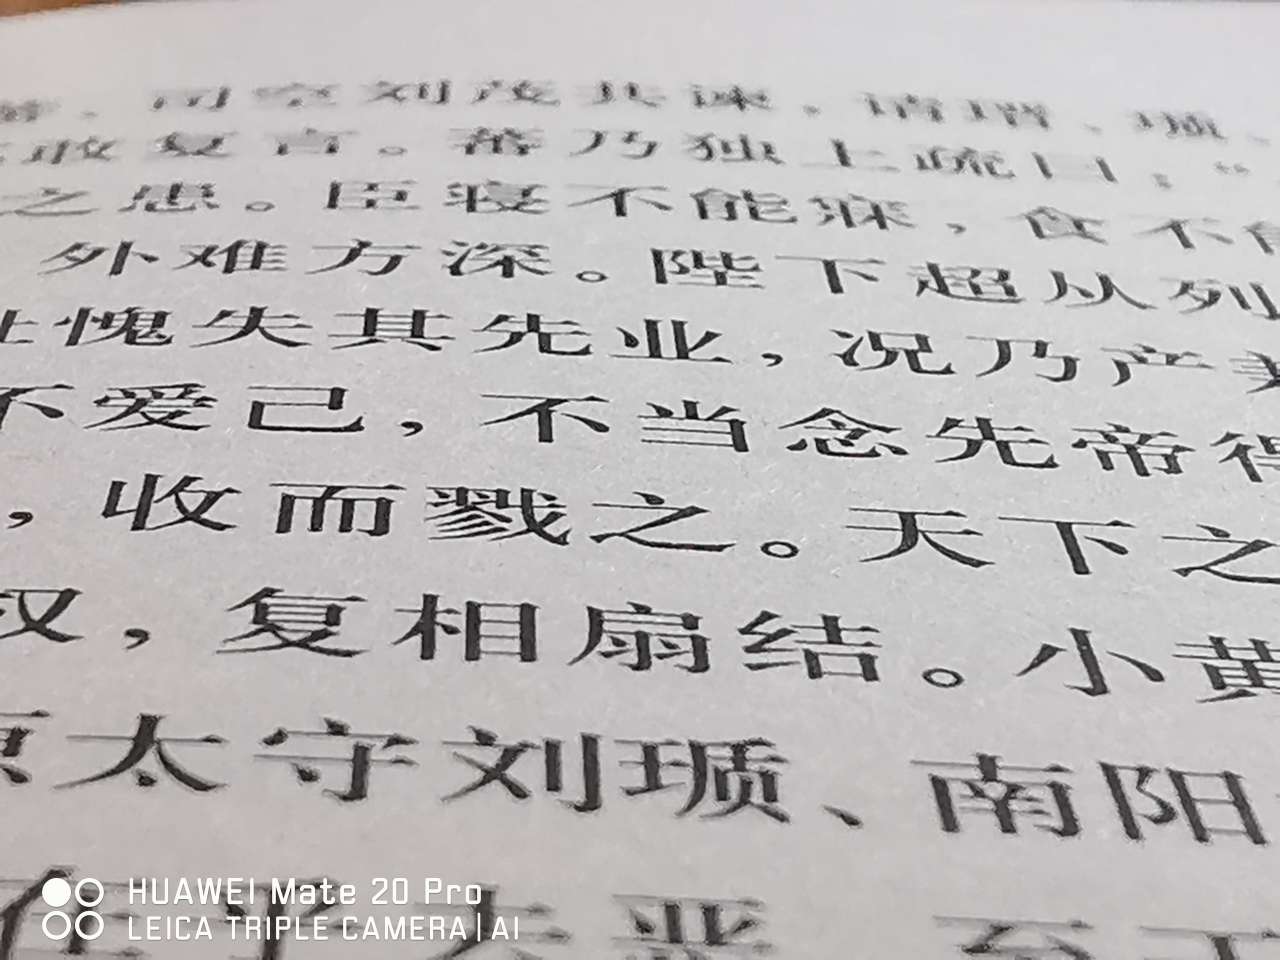 司空刘茂共谏，请瑨、瓆、
敢复言。蕃乃独上疏曰：“
之患。臣寝不能寐，食不能
外难方深。陛下超从列
耻愧失其先业，况乃产
不爱己，不当念先帝得
，收而戮之。天下之
权，复相扇结。小黄
原太守刘瓆、南阳
至于
HUAWEI Mate 20 Pro
LEICA TRIPLE CAMERA | AI